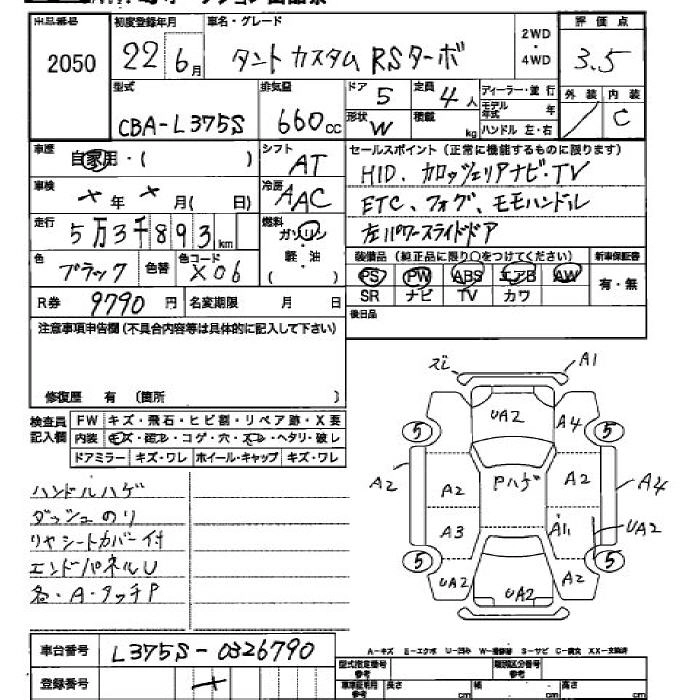 出品番号 初度登録年月 車名・グレード 2WD・4WD 評価点
2050 22年6月 タント カスタム RSターボ 3.5
型式 排気量 ドア 5 定員 4人 ディーラー・並行 外装 内装
CBA-L375S 660cc 形状 W 積載 kg モデル年式 年 ハンドル 左・右 / C
車歴 自家用・( ) シフト AT セールスポイント(正常に機能するものに限ります)
車検 × 年 × 月( 日) 冷房 AAC HID、カロッツェリアナビ・TV
走行 5万3千893km 燃料 ガソリン・軽・油( ) ETC、フォグ、モモハンドル
左パワースライドドア
色 ブラック 色替 色コード X06 装備品(純正品に限り○をつけてください) 新車保証書
PS PW ABS エアB AW 有・無
R券 9790円 名変期限 月 日 SR ナビ TV カワ
注意事項申告欄(不具合内容等は具体的に記入して下さい) 後日品
修復歴 有 (箇所 )
検査員記入欄 FW キズ・飛石・ヒビ割・リペア跡・X要
内装 キズ・・コゲ・穴・・ヘタリ・破レ
ドアミラー キズ・ワレ ホイール・キャップ キズ・ワレ
ズレ A1
UA2 A4
5 5
A2 A2 Pハゲ A2 A4
A3 A11 UA2
5 5
UA2 UA2 A2
ハンドルハゲ
ダッシュのリ
リヤシートカバー付
エンドパネルU
各・A・タッチP
A-キズ E-エクボ U-凹み W-補修跡 S-サビ C-腐食 XX-交換済
車台番号 L375S-0326790
登録番号 ×
型式指定番号 類別区分番号
長さ cm 幅 cm 高さ cm